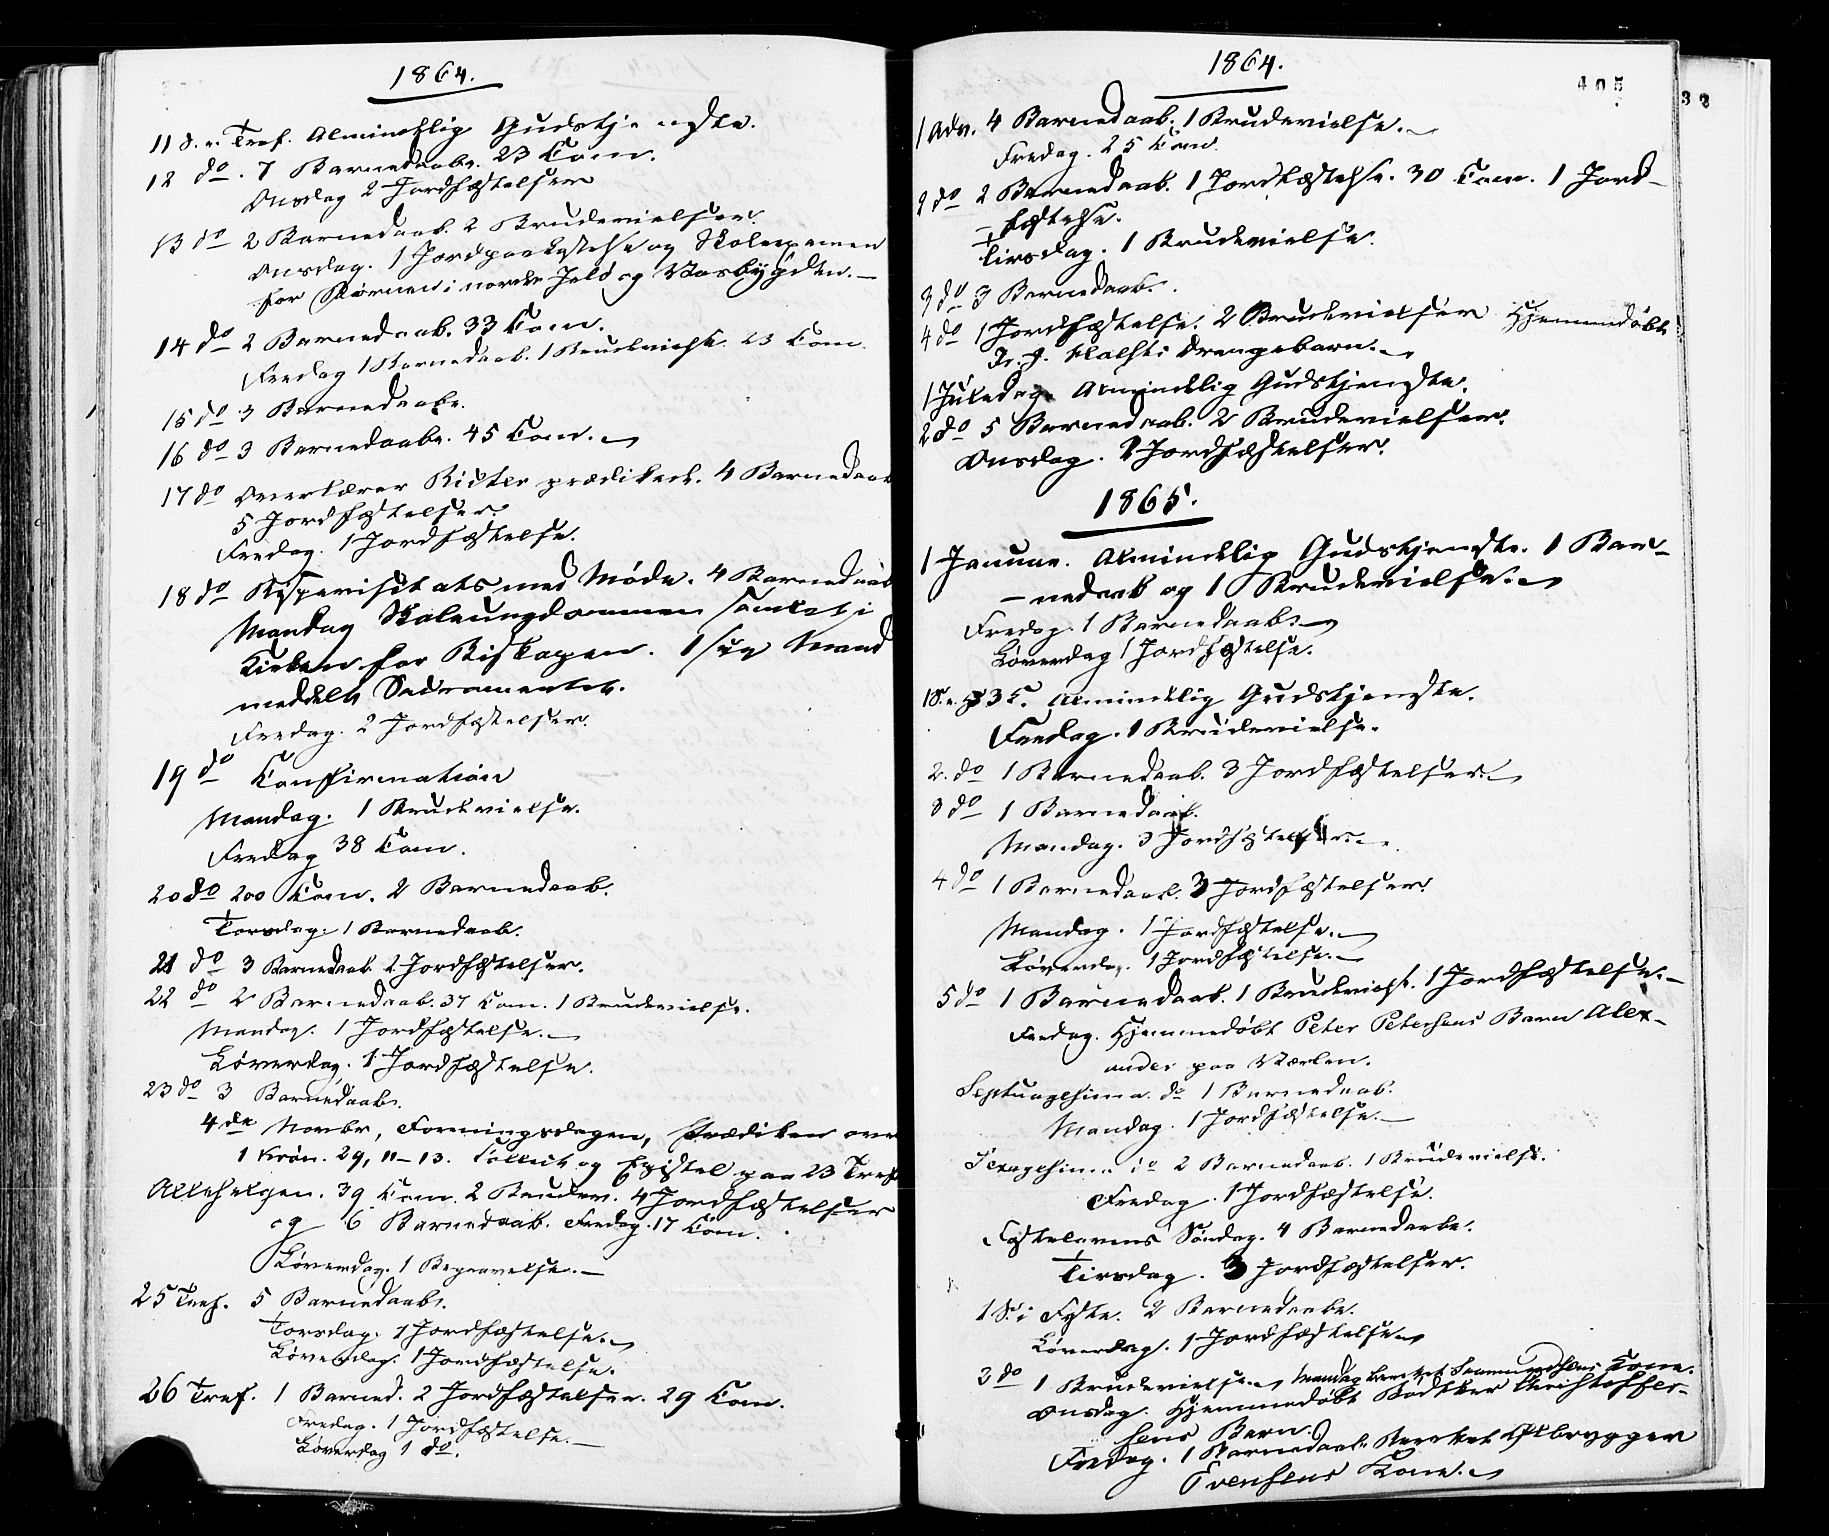 1864.
11 S. e. Tref. Almindelig Gudstjeneste.
12 do. 7 Barnedaabe. 23 Com.
Onsdag 2 Jordfæstelser
13 do 2 Barnedaab. 2 Brudevielser.
Onsdag. 1 Jordpaakastelse og Skoleexamen
for Børnene i nordre Jelø og Vasbygden.—
14 do 2 Barnedaab. 33 Com.
Fredag 1 Barnedaab. 1 Brudevielse. 23 Com.
15 do 3 Barnedaabe.
16 do 3 Barnedaabe. 45 Com.—
17 do Overlærer Richter prædikede. 4 Barnedaab
5 Jordfæstelser.
Fredag. 1 Jordfæstelse.
18 do Bispevisitats med Møde. 4 Barnedaab
Mandag Skoleungdommen samlet i
Kirken for Biskopen. 1 syg Mand
meddelt Sacramentet.
Fredag. 2 Jordfæstelser.
19 do Confirmation
Mandag. 1 Brudevielse.
Fredag 38 Com.
20 do 200 Com. 2 Barnedaab.
Torsdag. 1 Barnedaab.
21 do 3 Barnedaab 2 Jordfæstelser.
22 do 2 Barnedaab. 37 Com. 1 Brudevielse.
Mandag. 1 Jordfæstelse.—
Løverdag. 1 Jordfæstelse.
23 do 3 Barnedaab.
4de Novbr, Foreningsdagen, Prædiken over
1 Krøn. 29, 11-13. Collect og Epistel paa 23 Tref
Allehelgen. 39 Com. 2 Brudev. 4 Jordfæstelser
og 6 Barnedaab. Fredag. 17 Com.
Løverdag. 1 Begravelse.—
25 Tref. 5 Barnedaab.
Torsdag. 1 Jordfæstelse.—
Løverdag. 1 Jordfæstelse.
26 Tref. 1 Barned. 2 Jordfæstelser. 29 Com.
Fredag. 1 Jordfæstelse.—
Løverdag 1 do.
1864.
405
1 Adv. 4 Barnedaab. 1 Brudevielse.—
Fredag. 25 Com.
2 do 2 Barnedaab. 1 Jordfæstelse. 30 Com. 1 Jord-
-fæstelse.
Tirsdag. 1 Brudevielse.
3 do 3 Barnedaab.
4 do 1 Jordfæstelse. 2 Brudevielser Hjemmedøbt
Drengebarn.—
1 Juledag. Almindelig Gudstjeneste.
2 do 5 Barnedaab. 2 Brudevielser.
Onsdag. 2 Jordfæstelser.
1865.
1 Januar. Almindelig Gudstjeneste. 1 Bar-
-nedaab og 1 Brudevielse.—
Fredag. 1 Barnedaab.—
Løverdag 1 Jordfæstelse.
1 S. e. H 3 K. Almindelig Gudstjeneste.
Fredag. 1 Brudevielse.
2. do 1 Barnedaab. 3 Jordfæstelser.—
3 do 1 Barnedaab.
Mandag. 3 Jordfæstelser.—
4 do 1 Barnedaab. 3 Jordfæstelser.
Mandag. 1 Jordfæstelse.—
Løverdag. 1 Jordfæstelse.—
5 do 1 Barnedaab. 1 Brudevielse. 1 Jordfæstelse.—
Fredag. Hjemmedøbt Peter Petersens Barn Alex-
ander paa Værlen.
Septuagesima do 1 Barnedaab.
Mandag. 1 Jordfæstelse.—
Sexagesima do 2 Barnedaab. 1 Brudevielse.
Fredag. 1 Jordfæstelse.
Fastelavens Søndag. 4 Barnedaabe.
Tirsdag. 3 Jordfæstelser.
1 S. i Faste. 2 Barnedaabe.
Løverdag. 1 Jordfæstelse—
2 do 1 Brudevielse.— Mandag berettet Kone.
Onsdag. Hjemmedøbt Bødtker Christoffer-
sens Barn.
Fredag. 1 Barnedaab. Berettet Ølbrygger
Evensens Kone.—